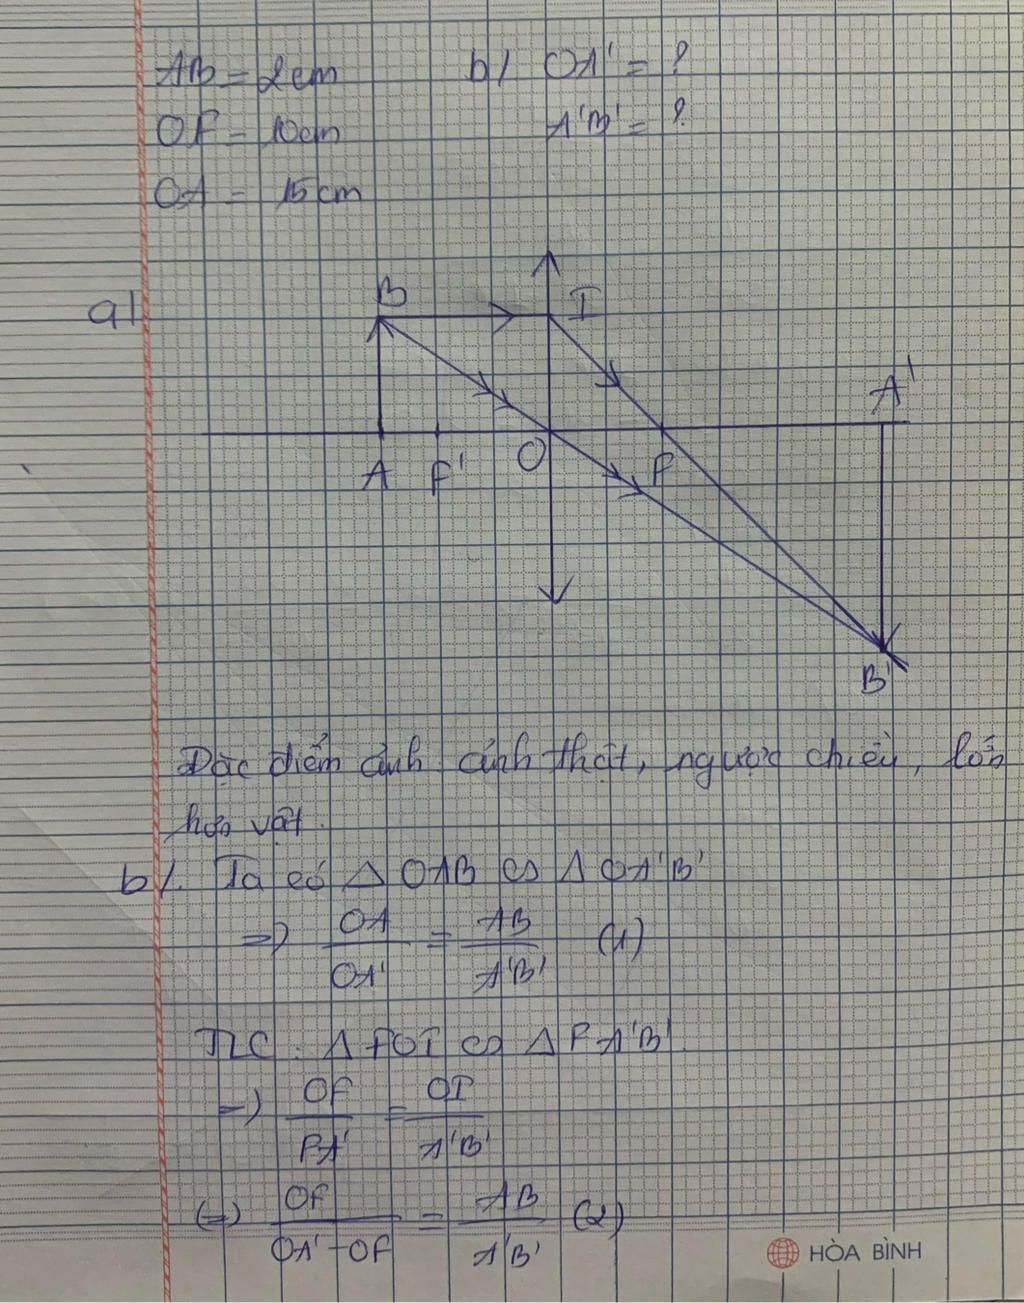 AB = 2cm b/ OA' = ?
OF = 10cm A'B' = ?
OA = 15cm
a/
B I
A'
A F' O F
B'
Đặc điểm ảnh: ảnh thật, ngược chiều, lớn
hơn vật.
b/. Ta có Δ OAB ∽ Δ OA'B'
=> OA/OA' = AB/A'B' (1)
TLC: Δ FOI ∽ Δ FA'B'.
=> OF/FA' = OI/A'B'
(=) OF/OA' - OF = AB/A'B' (2)
HÒA BÌNH